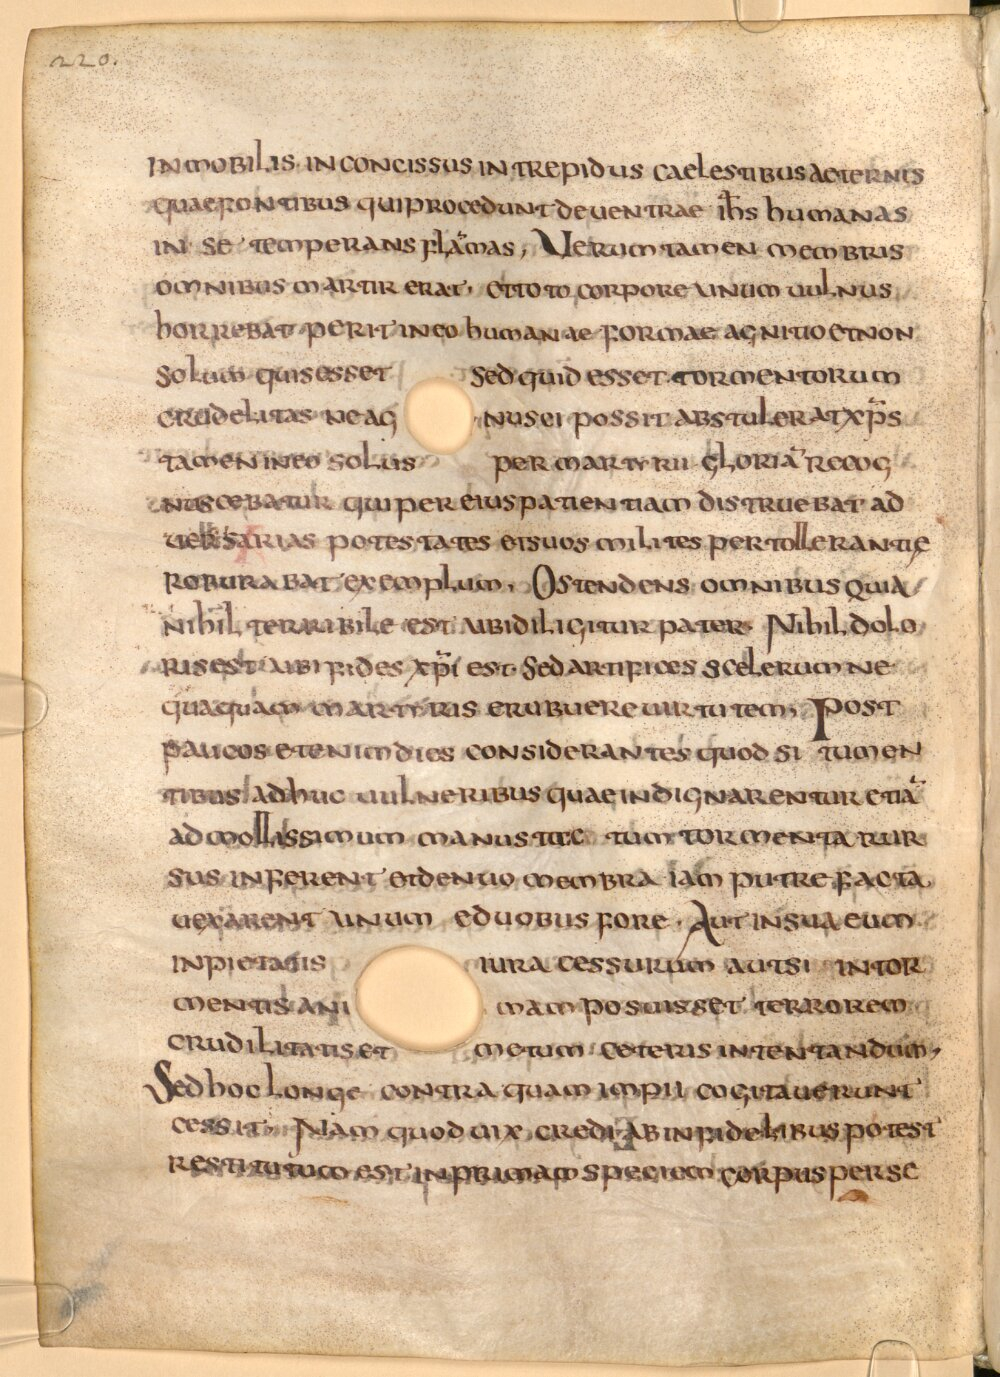 220.
inmobilis inconcissus intrepidus caelestibus aeternis
quae fontibus qui procedunt de uentrae ih̄s humanas
in se temperans flāmas, Uerumtamen membris
omnibus martir erat. et toto corpore unum uulnus
horrebat perit in eo humanae formae agnitio et non
solum quis esset sed quid esset tormentorum
crudelitas ne agnusei possit abstulerat xp̄s
tamen in eo solus per martyrii gloriā recog
nuscebatur qui per eius patientiam distruebat ad
uersarias potestates et suos milites per tollerantie
roburabat exemplum, Ostendens omnibus quia
nihil terribile est ubi diligitur pater. Nihil dolo
ris est ubi fides xp̄i est. Sed artifices scelerum ne
quaquam martyris erubuere uirtutem, Post
paucos etenim dies considerantes quod si tumen
tibus adhuc uulneribus quae indignarentur etiā
ad mollissimum manus tactum tormenta rur
sus inferent et denuo membra iam putrefacta
uexarent unum e duobus fore. Aut in sua eum
inpietatis iura cessurum aut si in tor
mentis animam posuisset terrorem
crudilitatis et metum ceteris intentandum,
Sed hoc longe contra quam impii cogitauerunt
cessit. Nam quod uix credi ab infidelibus potest
restitutum est in primam speciem corpus perse